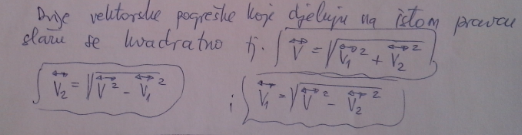 Dvije vektorske pogreške koje djeluju na istom pravcu
slažu se kvadratno tj. ∫ V⃡ = √(V⃡₁² + V⃡₂²)
∫ V⃡₂ = √(V⃡² - V⃡₁²) i ∫ V⃡₁ = √(V⃡² - V⃡₂²)